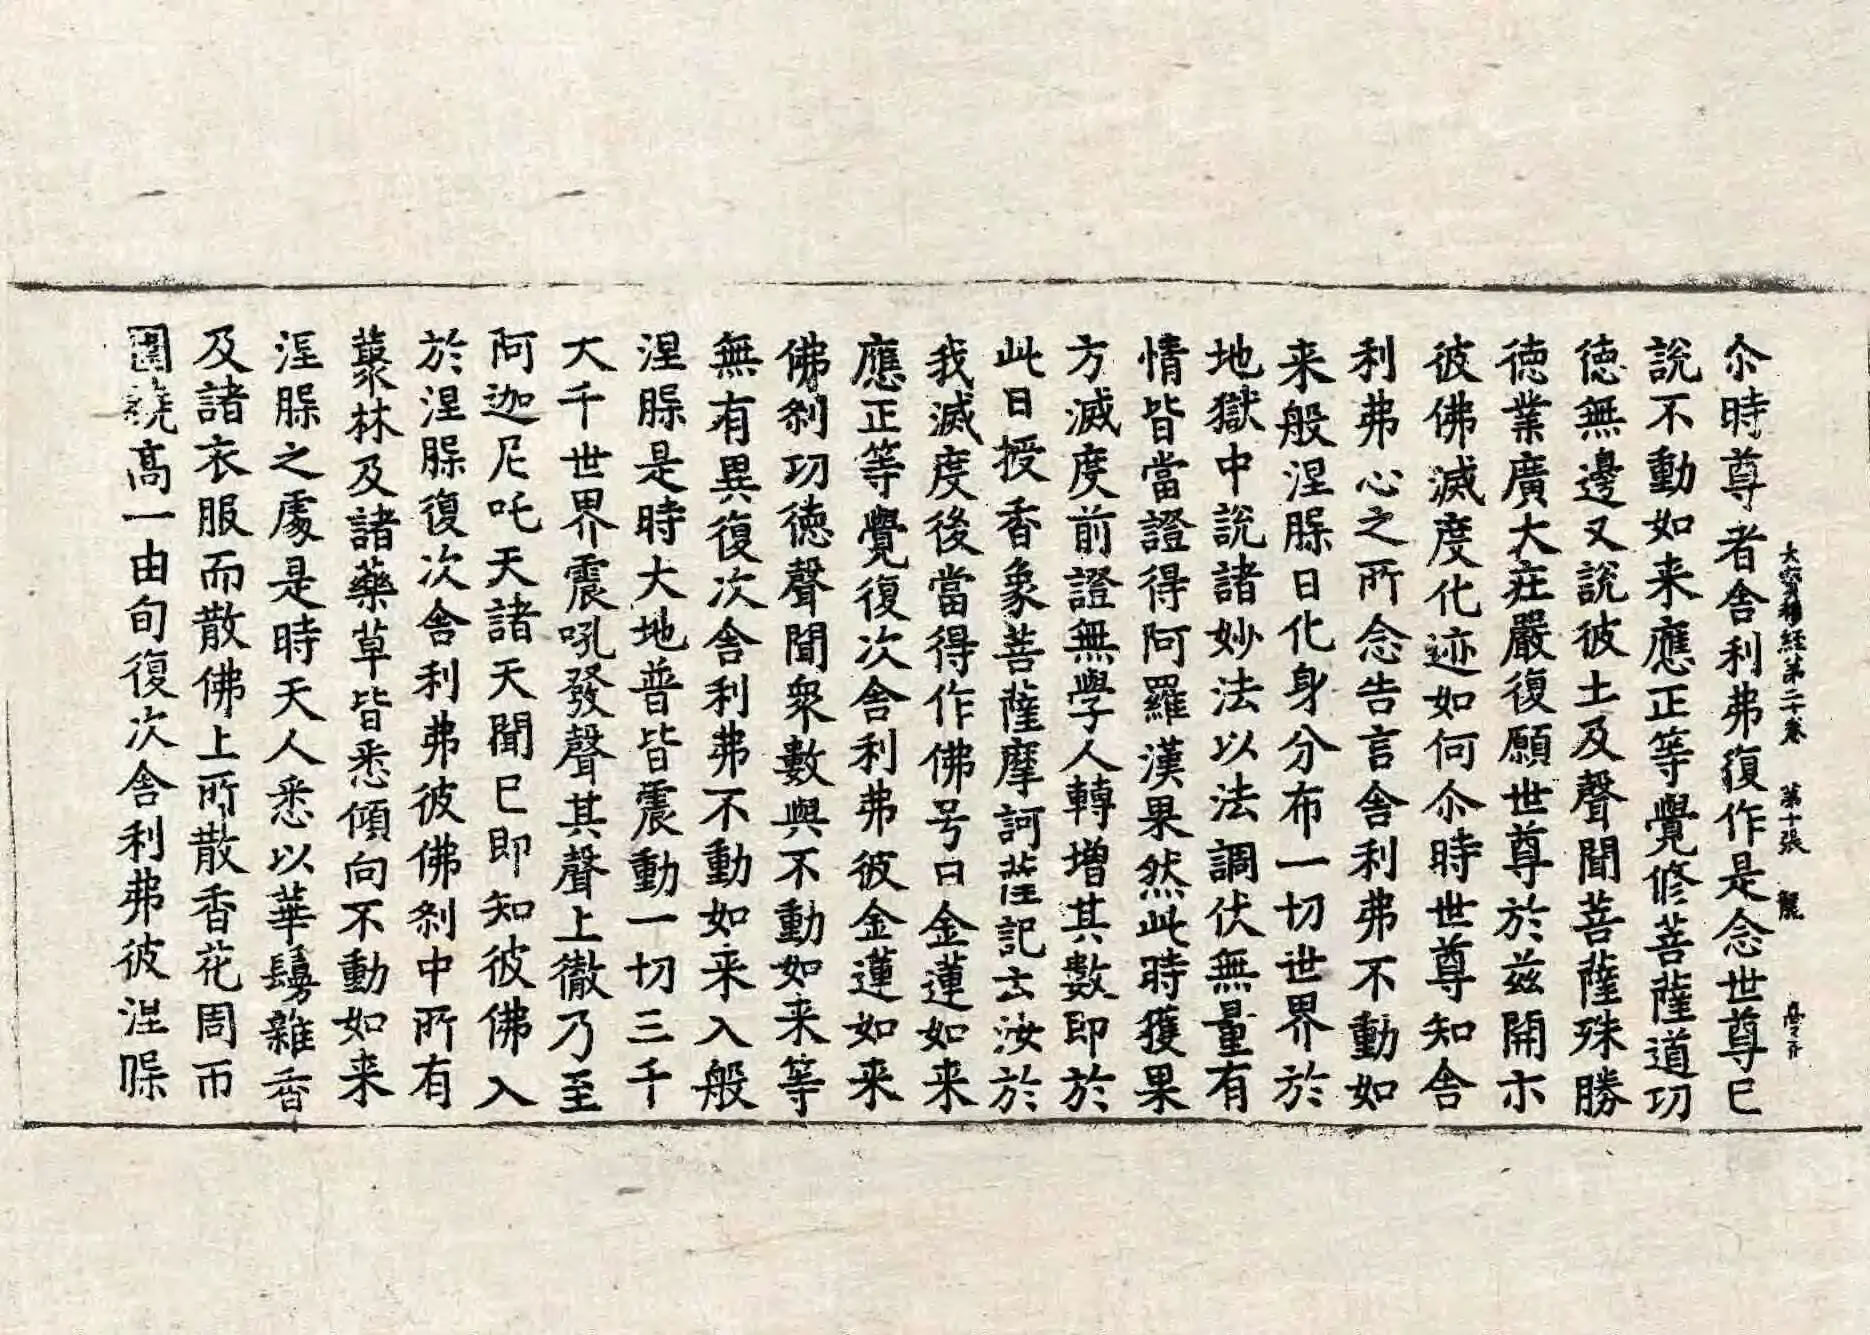 大寶積經第二十卷　第十張　龍
尒時尊者舍利弗復作是念世尊已
說不動如来應正等覺修菩薩道功
徳無邊又說彼土及聲聞菩薩殊勝
徳業廣大莊嚴復願世尊於茲開示
彼佛滅度化迹如何尒時世尊知舍
利弗心之所念告言舍利弗不動如
来般涅槃日化身分布一切世界於
地獄中說諸妙法以法調伏無量有
情皆當證得阿羅漢果然此時獲果
方滅度前證無學人轉增其數即於
此日授香象菩薩摩訶薩記云汝於
我滅度後當得作佛号曰金蓮如来
應正等覺復次舍利弗彼金蓮如来
佛刹功徳聲聞衆數與不動如来等
無有異復次舍利弗不動如来入般
涅槃是時大地普皆震動一切三千
大千世界震吼發聲其聲上徹乃至
阿迦尼吒天諸天聞已即知彼佛入
於涅槃復次舍利弗彼佛刹中所有
藂林及諸藥草皆悉傾向不動如来
涅槃之處是時天人悉以華鬘雜香
及諸衣服而散佛上所散香花周帀
圍繞高一由旬復次舍利弗彼涅槃